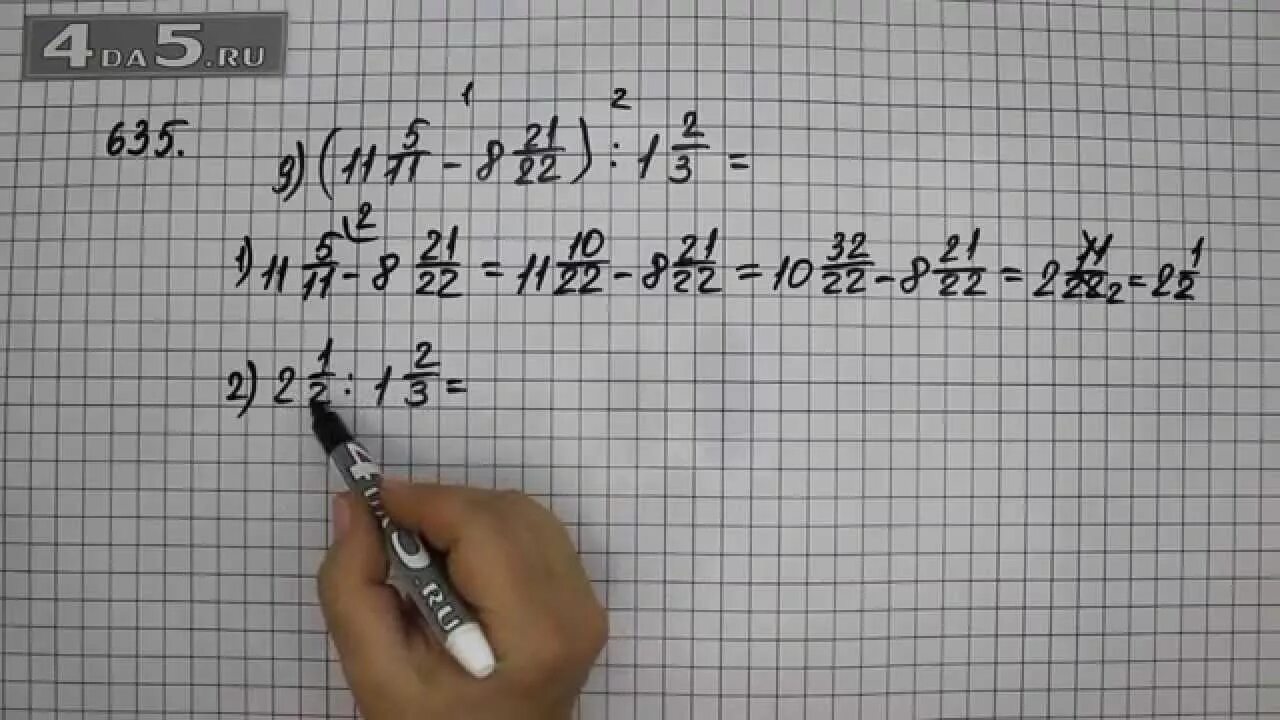 4DA5.RU
1 2
635. д) (11 5/11 - 8 21/22) : 1 2/3 =
1) 11 5/11 \2 - 8 21/22 = 11 10/22 - 8 21/22 = 10 32/22 - 8 21/22 = 2 11/22 2 = 2 1/2
2) 2 1/2 : 1 2/3 =
4DA5.RU